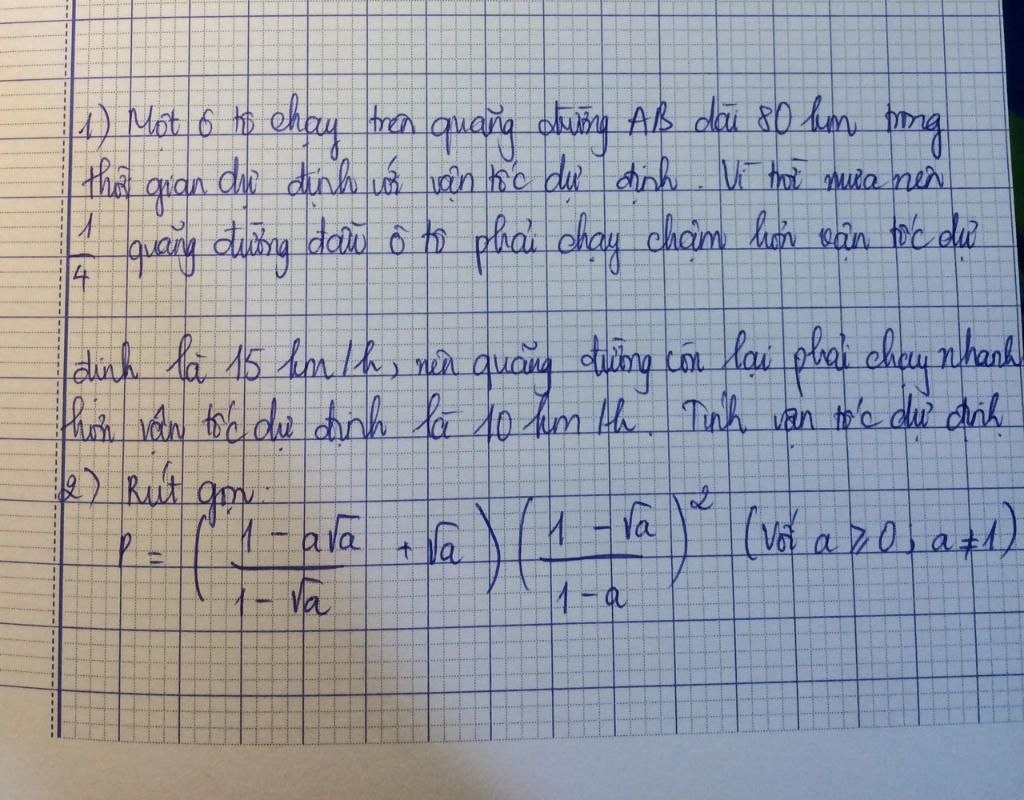 1) Một ô tô chạy trên quãng đường AB dài 80 km trong
thời gian dự định với vận tốc dự định. Vì trời mưa nên
1/4 quãng đường đầu ô tô phải chạy chậm hơn vận tốc dự
định là 15 km/h, nên quãng đường còn lại phải chạy nhanh
hơn vận tốc dự định là 10 km/h. Tính vận tốc dự định
2) Rút gọn:
P = ( (1 - a√a)/(1 - √a) + √a ) ( (1 - √a)/(1 - a) )² (Với a ≥ 0; a ≠ 1)